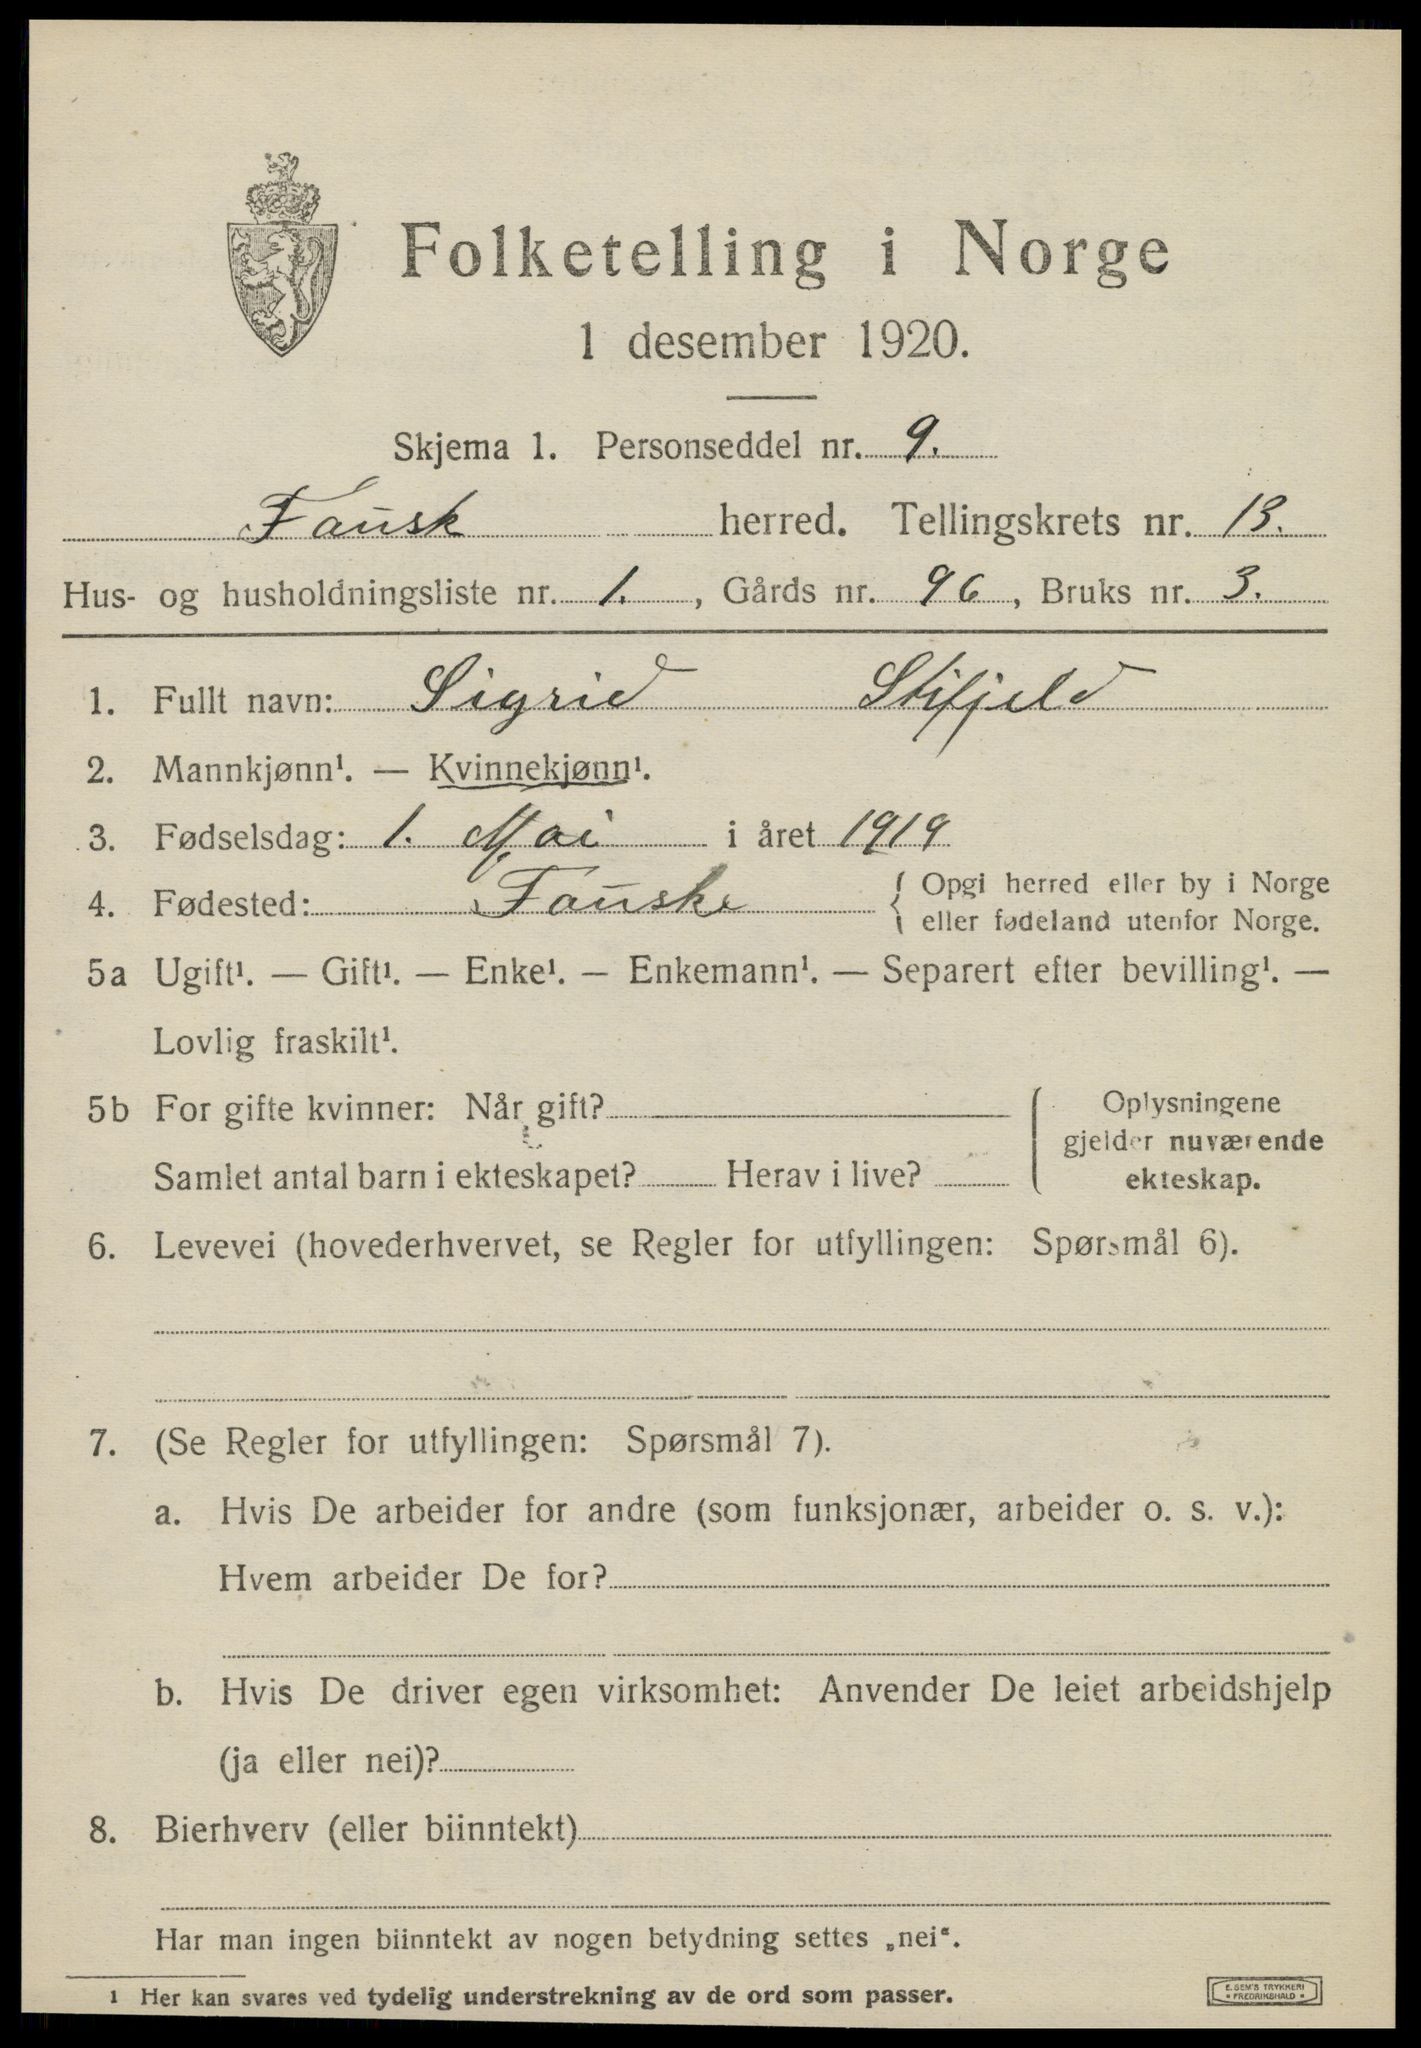 Folketelling i Norge
1 desember 1920.
Skjema 1. Personseddel nr. 9.
Fausk herred. Tellingskrets nr. 13.
Hus- og husholdningsliste nr. 1., Gårds nr. 96, Bruks nr. 3.
1. Fullt navn: Sigrid Stifjeld
2. Mannkjønn¹. — Kvinnekjønn¹.
3. Fødselsdag: 1. Mai i året 1919
4. Fødested: Fauske { Opgi herred eller by i Norge
eller fødeland utenfor Norge.
5a Ugift¹. — Gift¹. — Enke¹. — Enkemann¹. — Separert efter bevilling¹. —
Lovlig fraskilt¹.
5b For gifte kvinner: Når gift?
Samlet antal barn i ekteskapet? Herav i live?
Oplysningene
gjelder nuværende
ekteskap.
6. Levevei (hovederhvervet, se Regler for utfyllingen: Spørsmål 6).
7. (Se Regler for utfyllingen: Spørsmål 7).
a. Hvis De arbeider for andre (som funksjonær, arbeider o. s. v.):
Hvem arbeider De for?
b. Hvis De driver egen virksomhet: Anvender De leiet arbeidshjelp
(ja eller nei)?
8. Bierhverv (eller biinntekt)
Har man ingen biinntekt av nogen betydning settes „nei“.
1 Her kan svares ved tydelig understrekning av de ord som passer.
E. SEM'S TRYKKERI
* FREDRIKSHALD *